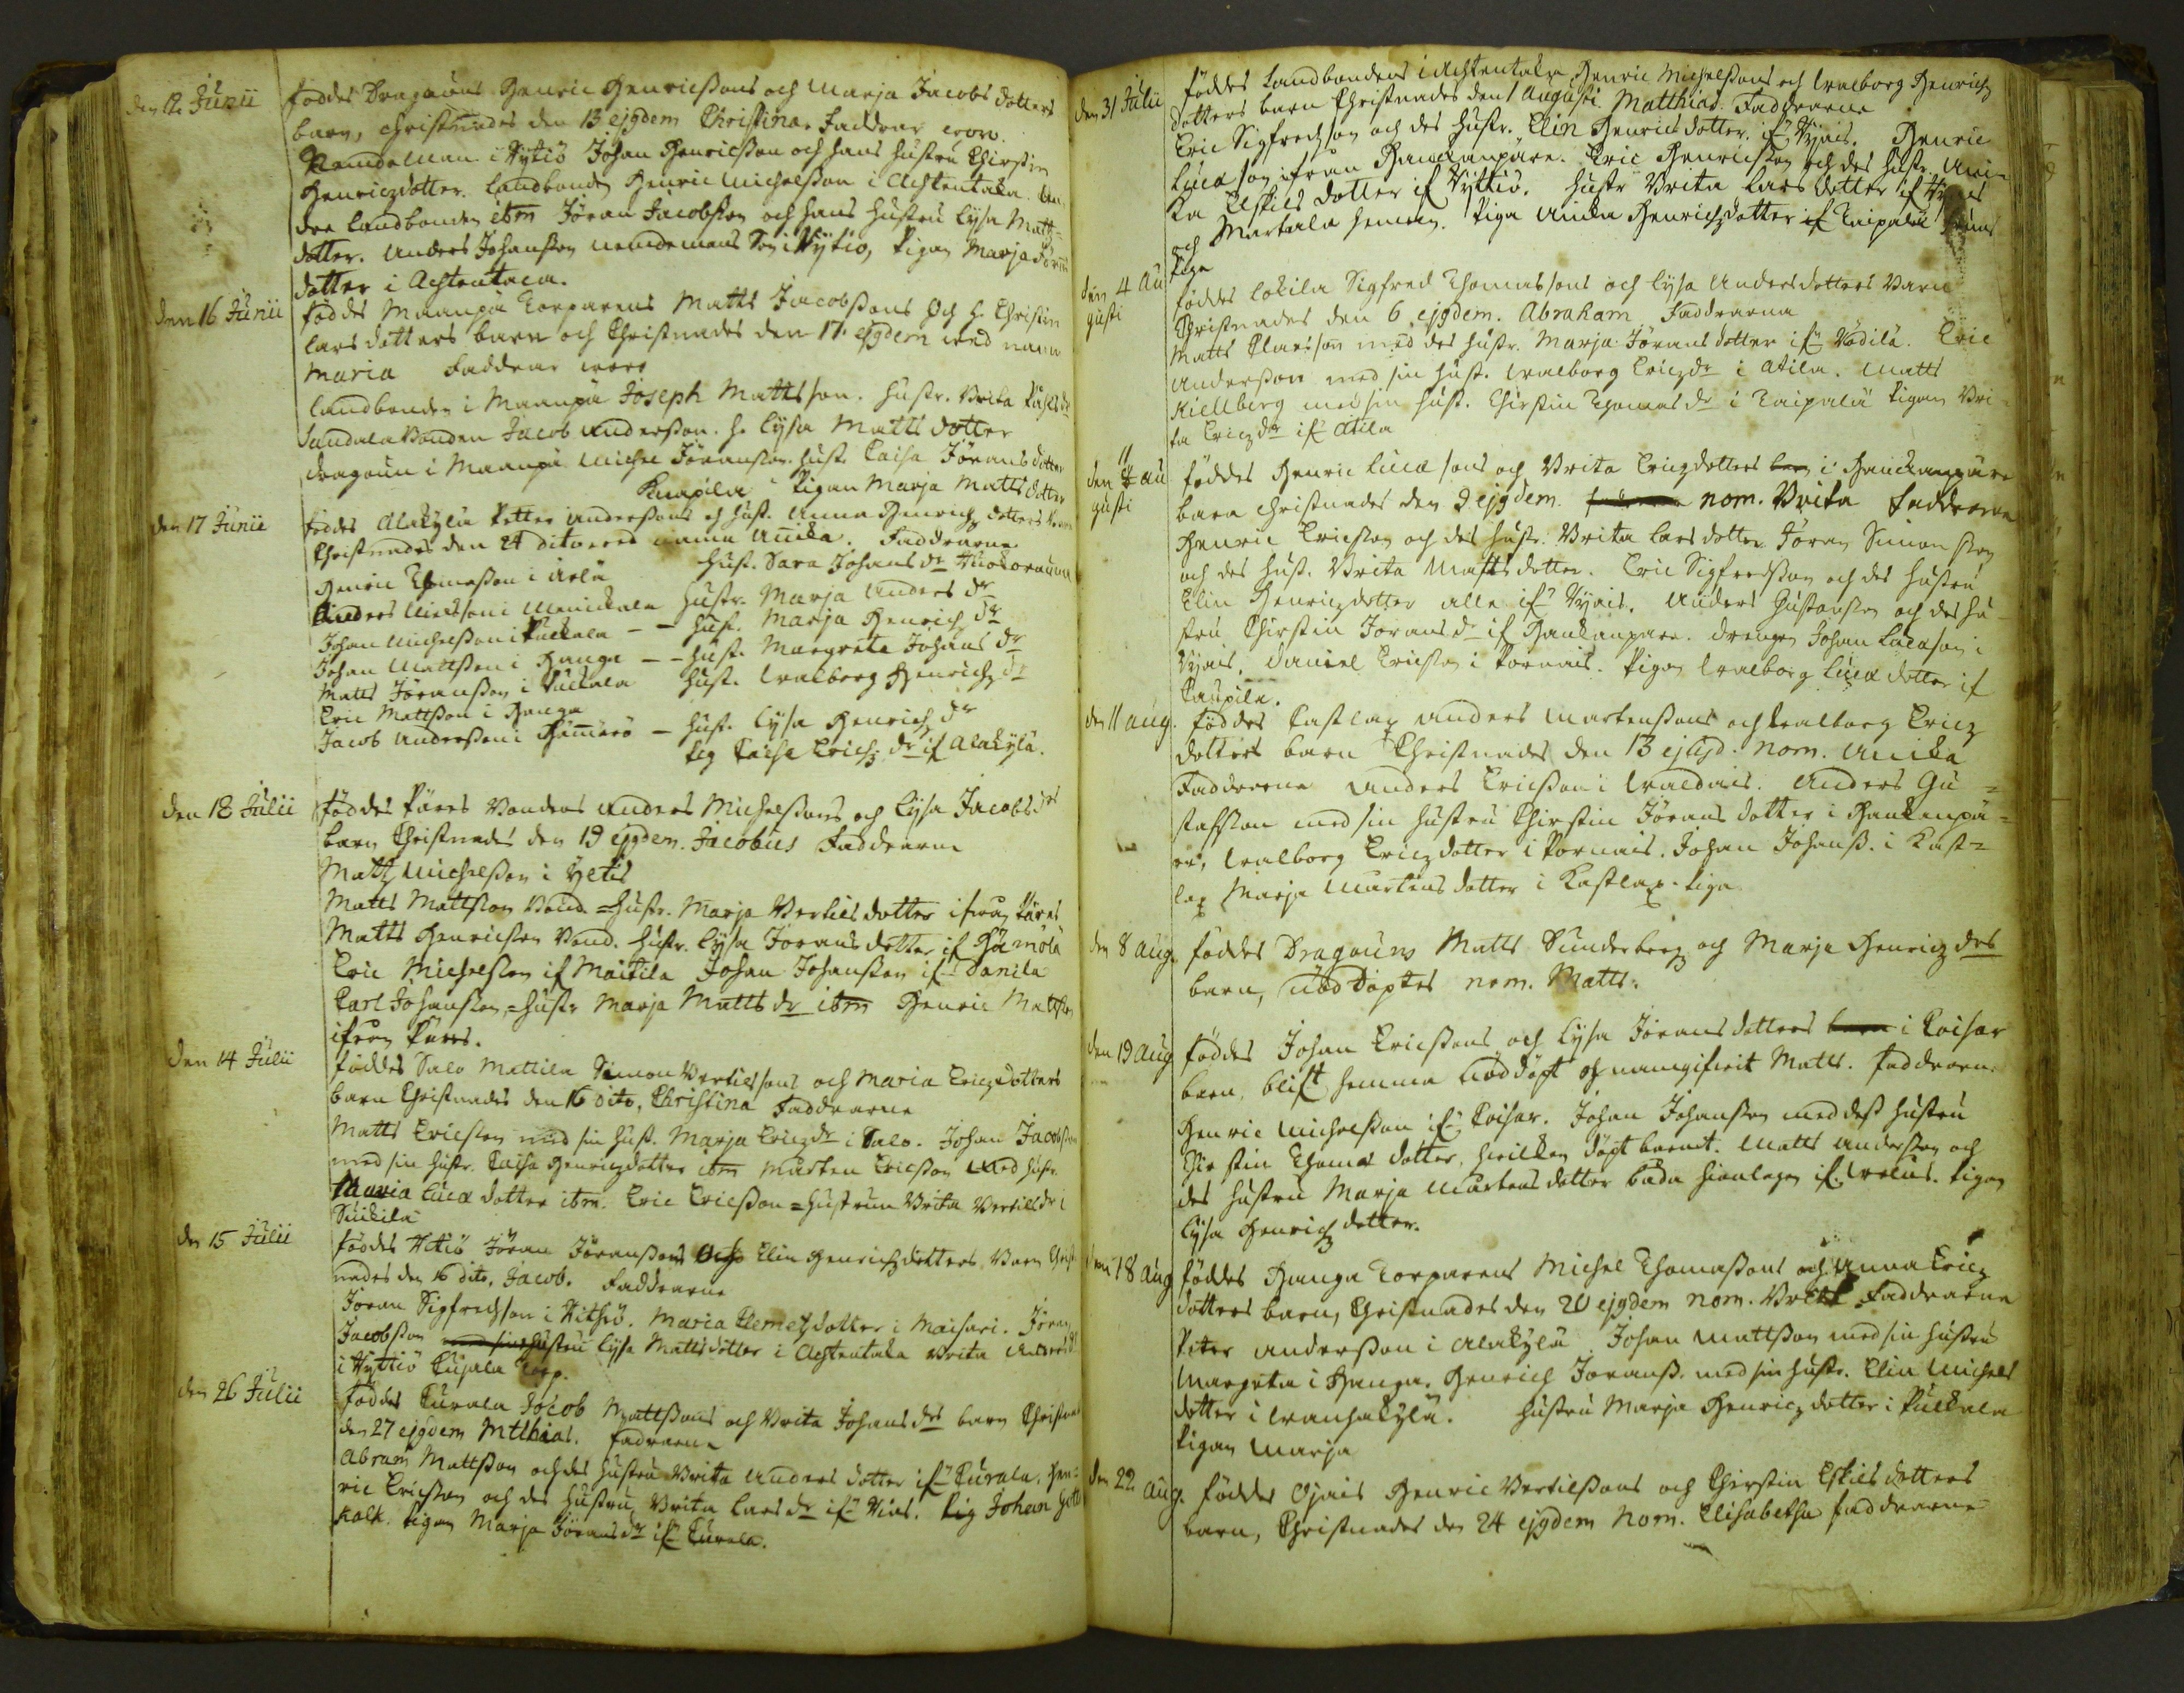 den 12 Junii föddes Dragouns Henric Henricssons och Marja Jacobs dotters
barn, christnades den 13 ejgdem Christina. Faddrar woro
Nemdeman i Nytiö Johan Henricsson och hans hustru Chirstin
Henricz dotter. Landbonden Henric Michelsson i Achtentaka.
dra landbonden ibm Jöran Jacobsson och hans hustru Lysa Matts
dotter. Anders Johansson nemdemans Son i Nytiö, Pigan Marja Jörans
dotter i Achtentaka.
den 16 Junii föddes Maanpä Torparens Matts Jacobssons och h. Christin
Lars dotters barn och Christnades den 17 ejgdem med namn
Maria Faddrar woro
Landbonden i Maanpä Joseph Mattsson. hustr. Brita
Bonden Jacob Andersson. h. Lysa Matts dotter
dragoun i Maanpä Michel Jöransson. hust. Caisa Jörans dotter
Knapila Pigan Marja Matts dotter
den 17 Junii föddes Alakylä Petter Anderssons och hust. Anna Henrichz dotters barn
Christnades den 24 dito med namn Anika. Faddrarne
Henric Thomasson i Arlä hust. Sara Johans dr
Anders Nielsson i Mennickala hustr. Marja Anders dr
Johan Michelsson i Pukkala -- hust. Marja Henrich dr
Johan Mattsson i Hanga -- hust. Margreta Johans dr
Matts Jöransson i Pukkala hust. Walborg Henrichz dr
Eric Mattsson i Hanga
Jacob Andersson i Hammarö - hust. Lysa Henrich dr
Pig Caisa Erichz dr if Alakylä.
den 18 Julii föddes Päres Bondens Anders Michelssons och Lysa Jacobs drs
barn Christnades den 19 ejgdem. Jacobus Faddrarne
Matts Michelsson i Yltis
Matts Mattsson Bond. = hustr. Marja Bertils dotter ifrån Päres
Matts Henricsson Bond. hustr. Lysa Jörans dotter if Hämölä
Eric Michelsson if Maitila Johan Johansson if Danila
Carl Johansson, = hustr Marja Matts dr ibm Henric Mattsson
ifrån Päres.
den 14 Julii föddes Salo Mattila Simon Bertilssons och Maria Ericz dotters
barn Christnades den 16 dito, Christina Faddrarne
Matts Ericsson med sin hust. Marja Ericz dr i Salo. Johan Jacobsson
med sin hustr. Caisa Henricz dotter ibm Mårten Ericsson med hustr.
Maria Lucæ dotter ibm. Eric Ericsson = hustrun Brita Bertils dr i
Suikila
den 15 Julii föddes Hitiö Jöran Jöranssons och Elin Henrichz dotters Barn Christ
nades den 16 dito, Jacob. Faddrarne
Jöran Sigfredsson i Hithiö. Maria Clemetz dotter i Maisari. Jöran
Jacobsson med sin hustru Lysa Matts dotter i Achtentaka Brita Anders dr
i Nyttiö Cujala torp.
den 26 Julii föddes Curala Jacob Mattssons och Brita Johans drs barn Christnades
den 27 ejgdem Mtthias. Fadrarne
Abram Mattsson och des hustru Brita Anders dotter if Curala. Hen=
ric Ericsson och des hustru Brita Lars dr if Nias. Pig Johan
Kalk. Pigan Marja Jörans dr if Curala.
den 31 Julii föddes Landbondens i Achtentaka Henric Michelssons och Walborg Henrichz
dotters barn Christnades den 1 Augusti Matthias. Faddrarne
Eric Sigfredsson och des hustr. Elin Henrics dotter if Nyais. Henric
Lucæ son ifrån Hauckanpäre. Eric Henricsson och des hustr. Ani-
ka Eskils dotter if Nyttiö. Hustr Brita Lars dotter if
och Martala hemman. Piga Anika Henrichz dotter if Taipalä
Piga
den 4 Au
gusti föddes Lokila Sigfred Thomassons och Lysa Anders dotters Barn
Christnades den 6 ejgdem. Abraham Faddrarna
Matts Clarsson med des hustr. Marja Jörans dotter if Wadilä. Eric
Andersson med sin hust. Walborg Ericz dr i Atila. Matts
Kiellberg med sin hust. Chirstin Thomas dr i Taipalä Pigan Bri-
ta Ericz dr if Atila
den 11 Au
gusti föddes Henric Lucæ sons och Brita Ericz dotters i Hauckanpäre
barn christnades den 9 ejgdem. nom. Brita Faddrarne
Henric Ericsson och des hustr. Brita Lars dotter Jöran Simonsson
och des hust. Brita Matts dotter. Eric Sigfredsson och des hustru
Elin Henricz dotter alle if Nyais. Anders Gustafsson och des hu-
stru Chirstin Jörans dr if Haukanpäre. drengen Johan Lucæson i
Nyais. Daniel Ericsson i Pornais. Pigan Walborg Lucæ dotter if
Caupila.
den 11 aug. föddes Castlax Anders Martenssons och Walborg Ericz
dotters barn Christnades den 13 ejusd. nom. Anika
Faddrarne Anders Ericsson i Waldais. Anders Gu=
stafsson med sin hustru Chirstin Jörans dotter i Haukanpä=
re, Walborg Ericz dotter i Pornais. Johan Johanss. i Kast=
lax Marja Mårtens dotter i Kastlax. Piga
den 8 aug. föddes Dragouns Matts Sunderberg och Marja Henricz drs
barn, Nöddöptes nom. Matts.
den 19 Aug föddes Johan Ericssons och Lysa Jörans dotters i Caisar
barn, blift hemma Nöddöpt och namngifwit Matts. Faddrarne
Henric Michelsson if Caisar. Johan Johansson med dess hustru
Chirstin Thomæ dotter, hwilken döpt barnet. Matts Andersson och
des hustru Marja Mårtens dotter båda hionlagen if. Pigan
Lysa Henrichz dotter.
den 18 Aug föddes Hanga Torparens Michel Thomassons och Anna Ericz
dotters barn, Christnades den 20 ejgdem nom. Brita Faddrarna
Peter Andersson i Alakylä Johan Mattsson med sin hustru
Margeta i Hanga. Henrich Jöranss. med sin hustr. Elin Michels
dotter i Wanhakylä. Hustru Marja Henricz dotter i Pukkala
Pigan Marja
den 22 aug. föddes Ojais Henric Bertilssons och Chirstin Eskils dotters
barn, Christnades den 24 ejgdem Nom. Elisabetha Faddrarne